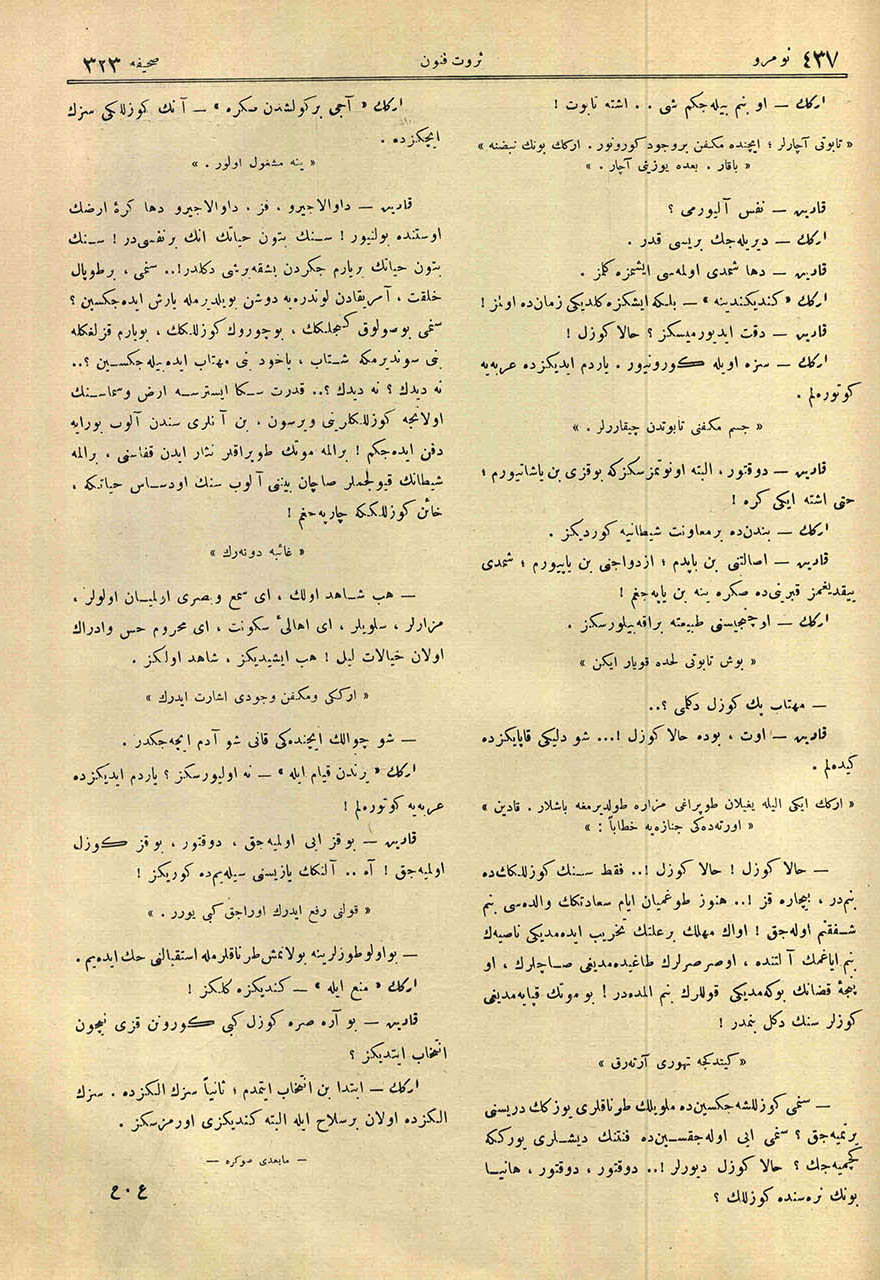 نومرو ٤٣٧
ثروت فنون
صحیفه ٣٢٣
ارکك — او بنم بیله‌جکم شی . . اشته تابوت !
« تابوتی آچارلر ؛ ایچنده مکفن بروجود کورونور . ارکك بونك نبضنه »
« باقار . بعده یوزینی آچار . »
قادین — نفس آلیورمی ؟
ارکك — دیریله‌جك بریسی قدر .
قادین — دها شمدی اولمه‌سی ایشمزه کلز .
ارکك « کندیکندینه » — بلکه ایشکزه کلدیکی زمان‌ده اولمز !
قادین — دقت ایدیورمیسکز ؟ حالا کوزل !
ارکك — سزه اویله کورونیور . یاردم ایدیکزده عربه‌یه
کوتوره‌لم .
« جسم مکفنی تابوتدن چیقاررلر . »
قادین — دوقتور ، البته اونوتمز‌سکزکه بوقزی بن یاشاتیورم ؛
حتی اشته ایکی کره !
ارکك — بندن‌ده برمعاونت شیطانیه کوردیکز .
قادین — اصالتنی بن یاپدم ؛ ازدواجنی بن یاپیورم ؛ شمدی
ییقدیغمز قبرینی‌ده صکره ینه بن یاپه‌جغم !
ارکك — اوچنجیسنی طبیعته براقه‌بیلورسکز .
« بوش تابوتی لحده قویار ایکن »
— مهتاب پك کوزل دکلی ؟..
قادین — اوت ، بوده حالا کوزل !... شو دلیکی قاپایکزده
کیده‌لم .
« ارکك ایکی الیله یغیلان طوپراغی مزاره طولدیرمغه باشلار . قادین »
« اورته‌ده‌کی جنازه‌یه خطاباً : »
— حالا کوزل ! حالا کوزل !.. فقط سنك کوزللکك‌ده
بنم‌در ، بیچاره قز !.. هنوز طوغمیان ایام سعادتکك والده‌سی بنم
شفقتم اوله‌جق ! اواك مهلك برعلتك تخریب ایده‌مدیکی ناصیه‌ك
بنم ایاغمك آلتنده ، اوصرصرلرك طاغیده‌مدیغی صاچلرك ، او
پنجهٔ قضانك بوکه‌مدیکی قوللرك بنم المده‌در ! بو موتك قپایه‌مدیغی
کوزلر سنك دکل بنمدر !
« کیتدکجه تهوری آرته‌رق »
— سنمی کوزللشه‌جکسین‌ده ملویلك طرناقلری یوزکك دریسنی
یرتمیه‌جق ؟ سنمی ایی اوله‌جقسین‌ده فتنتك دیشلری یورککه
کچمیه‌جك ؟ حالا کوزل دیورلر !.. دوقتور ، دوقتور ، هانیا
بونك نره‌سنده کوزللك ؟
ارکك « آجی برکولشدن صکره » — آنك کوزللکی سزك
ایچکزده .
« ینه مشغول اولور . »
قادین — داوالاجیرو ، قز ، داوالاجیرو دها کرهٔ ارضك
اوستنده بولنیور ! سنك بتون حیاتك انك برنفسی‌در ! سنك
بتون حیاتك بریارم جکردن بشقه‌برشی دکلدر!.. سنمی ، برطوپال
خلقت ، آمریقادن لوندره‌یه دوشن بویلدیرمله یارش ایده‌جکسین ؟
سنمی بوصولوق کنجلکك ، بوچوروك کوزللکك ، بویارم قزلغکله
بنی سوندیرمکه شتاب ، یاخود بنی مهتاب ایده‌بیله‌جکسین ؟..
نه دیدك ؟ نه دیدك ؟.. قدرت سکا ایسترسه ارض وسماسنك
اولانجه کوزللکلرینی ویرسون ، بن آنلری سندن آلوب بورایه
دفن ایده‌جکم ! برالمه موتك طوپراقلر نثار ایدن قفاسنی ، برالمه
شیطانك قیولجملر صاچان بیننی آلوب سنك اودساس حیاتکه ،
خائن کوزللککه چارپه‌جغم !
« غائبه دونه‌رك »
— هب شاهد اولك ، ای سمع وبصری ارلمیان اولولر ،
مزارلر ، سلویلر ، ای اهالیٔ سکونت ، ای محروم حس وادراك
اولان خیالات لیل ! هب ایشیدیکز ، شاهد اولکز .
« ارککی ومکفن وجودی اشارت ایدرك »
— شو چوالك ایچنده‌کی قانی شو آدم ایچه‌جکدر .
ارکك « یرندن قیام ایله » — نه اولیورسکز ؟ یاردم ایدیکزده
عربه‌یه کوتوره‌لم !
قادین — بوقز ایی اولمیه‌جق ، دوقتور ، بوقز کوزل
اولمیه‌جق ! آه .. آلنکك یازیسنی سیله‌یم‌ده کوریکز !
« قولنی رفع ایدرك اوراجق کبی یورر . »
— بواولوطوزلرینه بولانمش طرناقلرمله استقبالنی حك ایده‌یم .
ارکك « منع ایله » — کندیکزه کلکز !
قادین — بو آره صره کوزل کبی کورونن قزی نیچون
انتخاب ایتدیکز ؟
ارکك — ابتدا بن انتخاب ایتدم ؛ ثانیاً سزك الکزده . سزك
الکزده اولان برسلاح ایله البته کندیکزی اورمزسکز .
— مابعدی صوکره —
ع ٠ ح